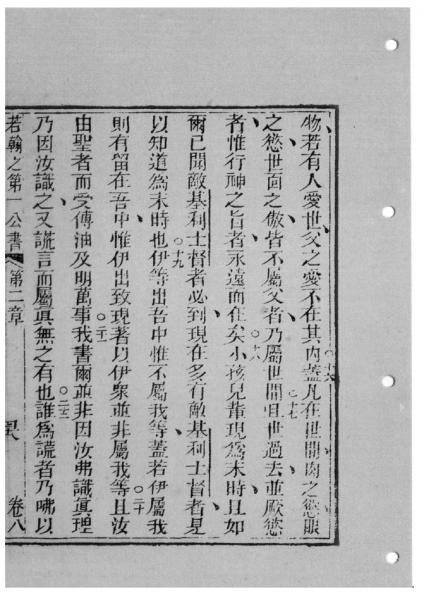 物若有人愛世父之愛不在其內蓋凡在世間肉之慾眼
之慾世面之傲皆不屬父者乃屬世間〇十七且世過去並厥慾
者惟行神之旨者永遠而在矣〇十八小孩兒輩現為末時且如
爾已聞敵基利士督者必到現在多有敵基利士督者是
以知道為末時也〇十九伊等出吾中惟不屬我等蓋若伊屬我
則有留在吾中惟伊出致現著以伊衆並非屬我等〇二十且汝
由聖者而受傅油及明萬事〇二一我書爾並非因汝弗識眞理
乃因汝識之又謊言而屬眞無之有也〇二二誰為謊者乃咈以
若翰之第一公書 第二章 卷八